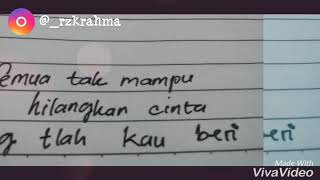 @_rzkrahma
emua tak mampu
hilangkan cinta
g tlah kau beri eri
Made With
VivaVideo